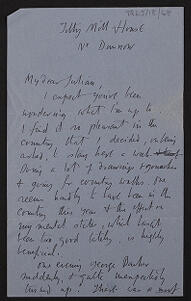 Tilty Mill House
Nr Dunmow
My dear Julian
I expect you've been
wondering what I'm up to
I find it so pleasant in the
country that I decided, unless
asked, to stay here a week
Doing a lot of drawings +
& going for country walks. One
seems hardly to have been in the
country this year & the effect on
my mental state, which hasn't
been too good lately, is highly
beneficial.
One evening George Barker
suddenly & quite unexpectedly
turned up. There was a most